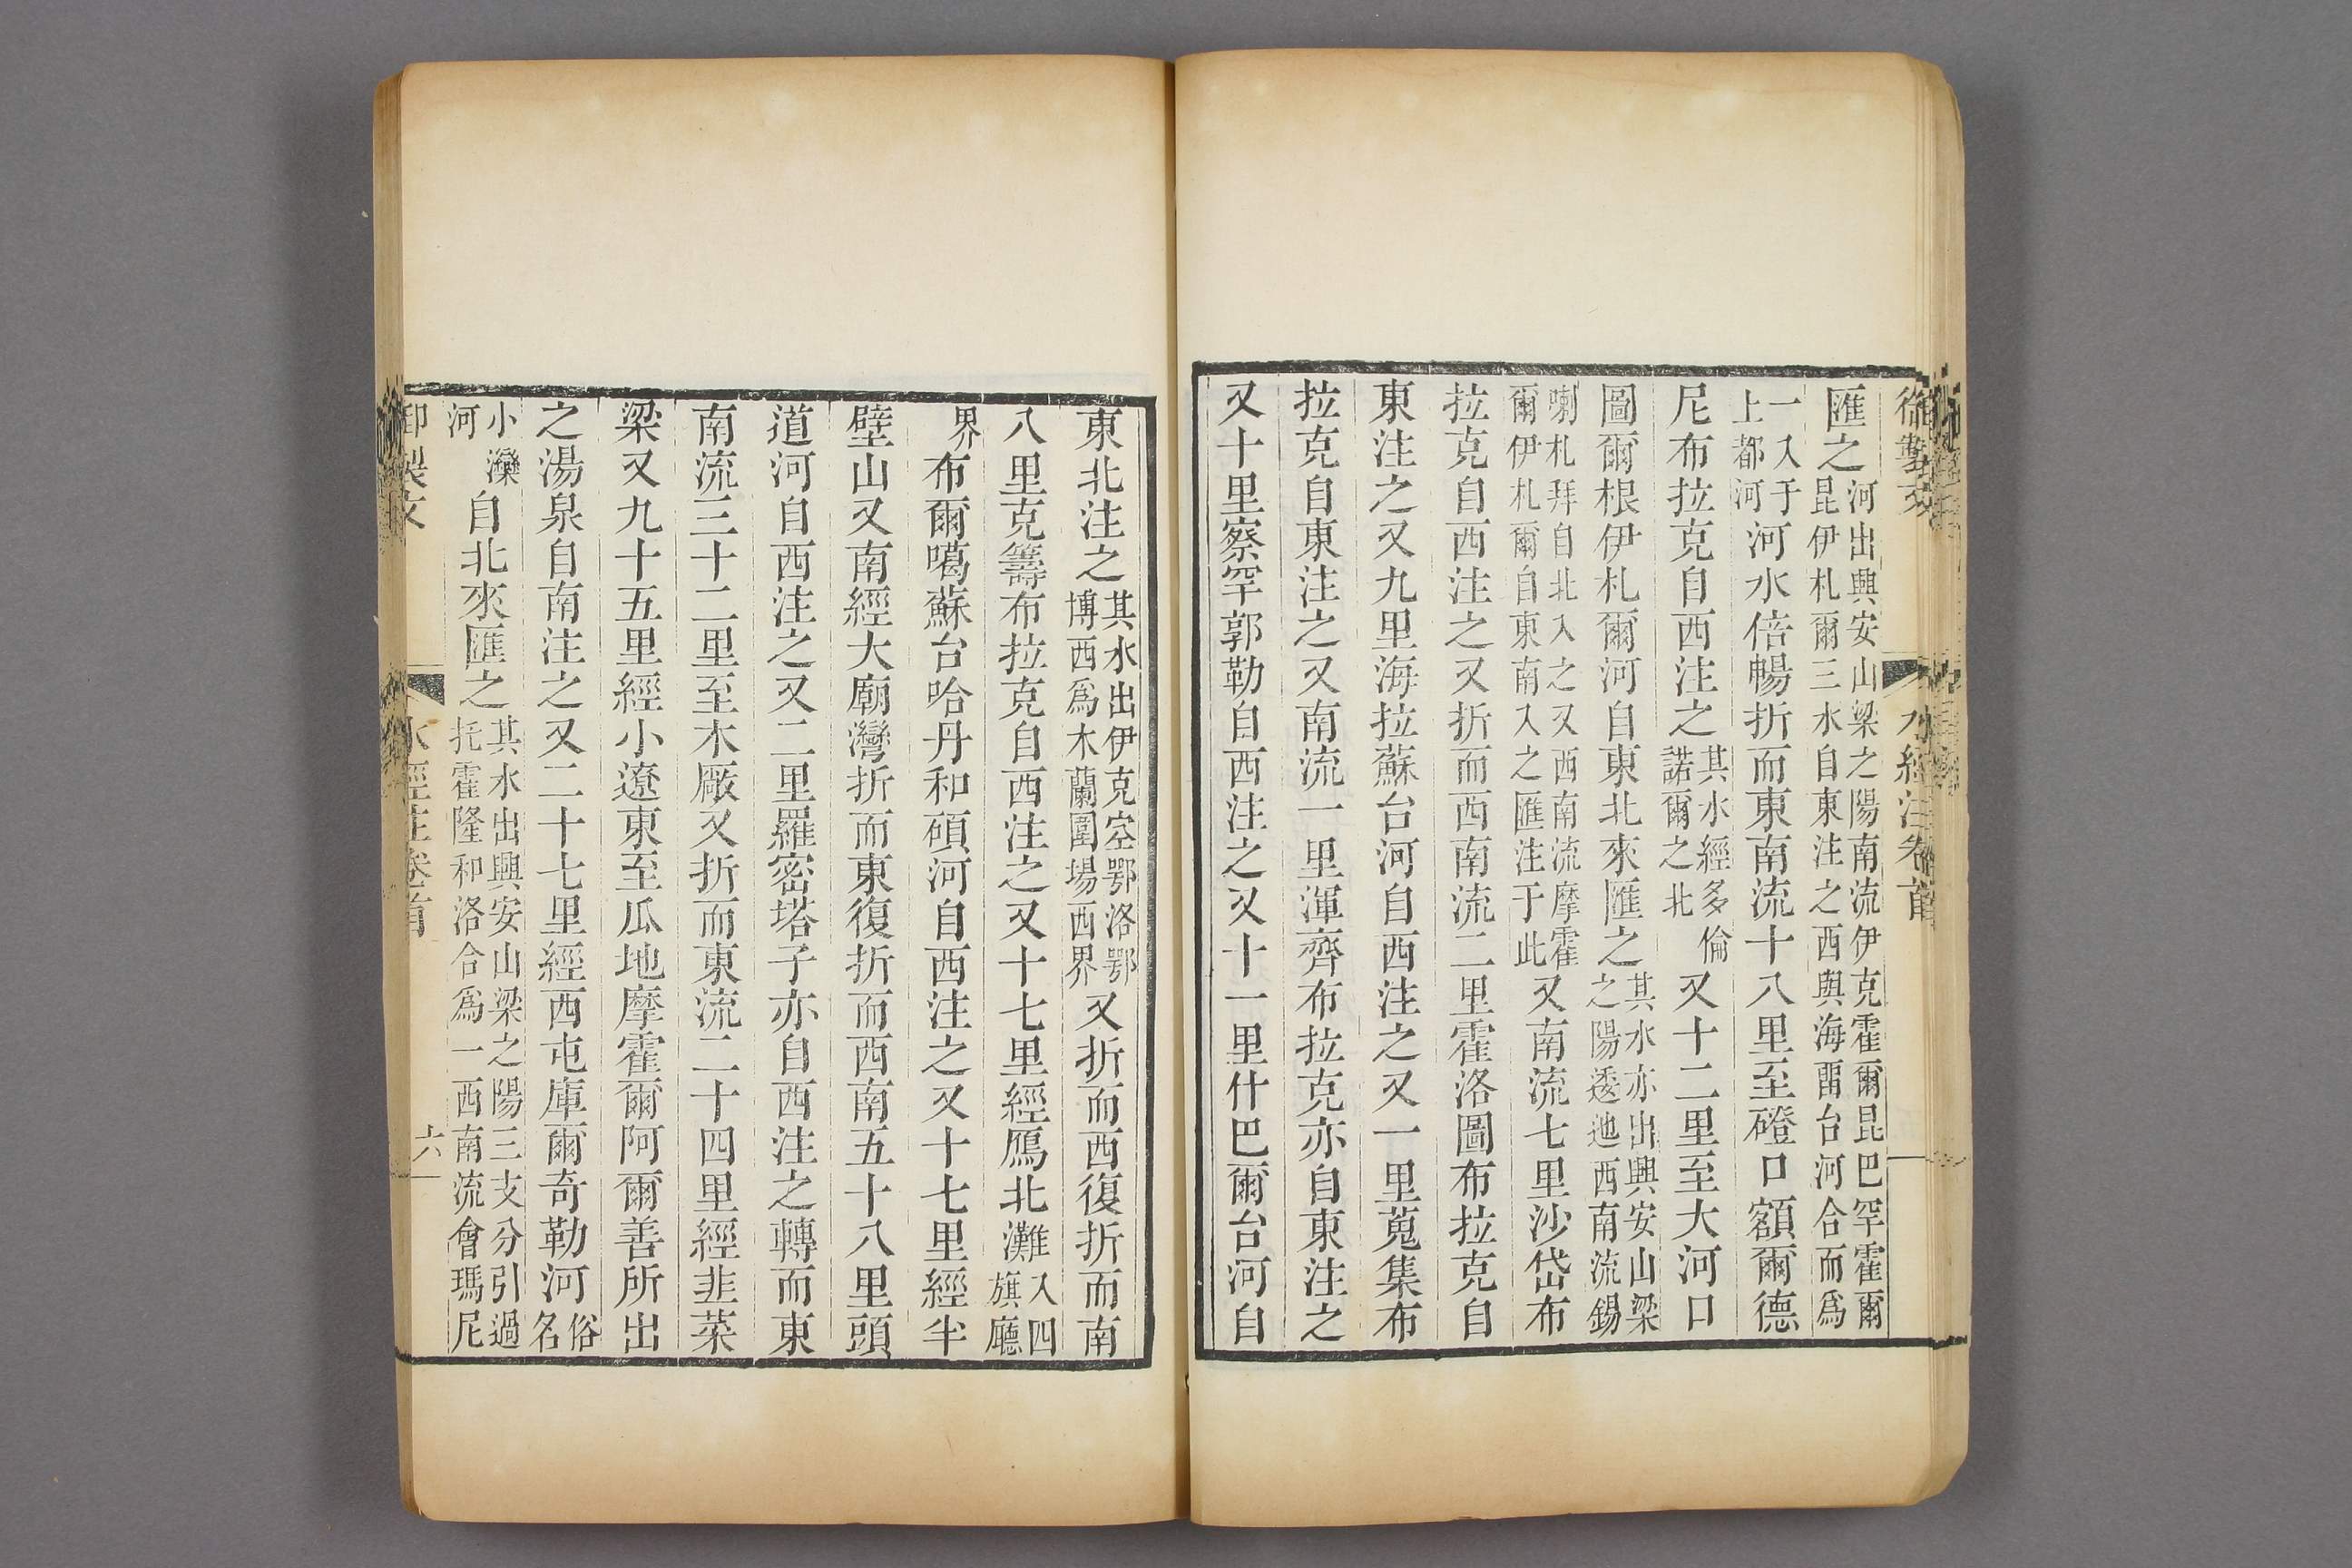 水經注卷首
匯之河出興安山梁之陽南流伊克霍爾昆巴罕霍爾昆伊札爾三水自東注之西與海畱台河合而爲
一入于上都河河水倍暢折而東南流十八里至磴口額爾德
尼布拉克自西注之其水經多倫諾爾之北又十二里至大河口
圖爾根伊札爾河自東北來匯之其水亦出興安山梁之陽逶迆西南流錫
喇札拜自北入之又西南流摩霍爾伊札爾自東南入之匯注于此又南流七里沙岱布
拉克自西注之又折而西南流二里霍洛圖布拉克自
東注之又九里海拉蘇台河自西注之又一里蒐集布
拉克自東注之又南流一里渾齊布拉克亦自東注之
又十里察罕郭勒自西注之又十一里什巴爾台河自
東北注之其水出伊克空鄂洛鄂博西爲木蘭圍場西界又折而西復折而南
八里克籌布拉克自西注之又十七里經鴈北灘入四旗廳
界布爾噶蘇台哈丹和碩河自西注之又十七里經半
壁山又南經大廟灣折而東復折而西南五十八里頭
道河自西注之又二里羅密塔子亦自西注之轉而東
南流三十二里至木厰又折而東流二十四里經韭菜
梁又九十五里經小遼東至瓜地摩霍爾阿爾善所出
之湯泉自南注之又二十七里經西屯庫爾奇勒河俗名
小灤河自北來匯之其水出興安山梁之陽三支分引過托霍隆和洛合爲一西南流會瑪尼
御製文
水經注卷首
六